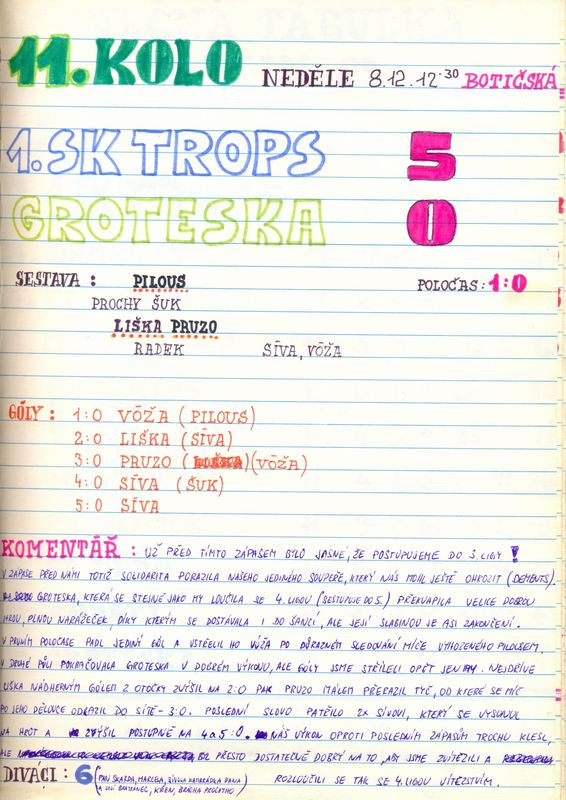 11. KOLO NEDĚLE 8.12. 12.30 BOTIČSKÁ
1. SK TROPS 5
GROTESKA 0
SESTAVA : PILOUS POLOČAS : 1:0
PROCHY ŠUK
LIŠKA PRUZO
RADEK SÍVA, VÓŽA
GÓLY : 1:0 VÓŽA (PILOUS)
2:0 LIŠKA (SÍVA)
3:0 PRUZO (VÓŽA)
4:0 SÍVA (ŠUK)
5:0 SÍVA
KOMENTÁŘ : UŽ PŘED TÍMTO ZÁPASEM BYLO JASNÉ, ŽE POSTUPUJEME DO 3. LIGY !
V ZÁPASE PŘED NÁMI TOTIŽ SOLIDARITA PORAZILA NAŠEHO JEDINÉHO SOUPEŘE, KTERÝ NÁS MOHL JEŠTĚ OHROZIT (DEMENTS).
GROTESKA, KTERÁ SE STEJNĚ JAKO MY LOUČILA SE 4. LIGOU (SESTUPUJE DO 5.) PŘEKVAPILA VELICE DOBROU
HROU, PLNOU NARÁŽEČEK, DÍKY KTERÝM SE DOSTÁVALA I DO ŠANCÍ, ALE JEJÍ SLABINOU JE ASI ZAKONČENÍ.
V PRVNÍM POLOČASE PADL JEDINÝ GÓL A VSTŘELIL HO VÓŽA PO DŮRAZNÉM SLEDOVÁNÍ MÍČE VYHOZENÉHO PILOUSEM.
V DRUHÉ PŮLI POKRAČOVALA GROTESKA V DOBRÉM VÝKONU, ALE GÓLY JSME STŘÍLELI OPĚT JEN MY. NEJDŘÍVE
LIŠKA NÁDHERNÝM GÓLEM Z OTOČKY ZVÝŠIL NA 2:0 PAK PRUZO MÁLEM PŘERAZIL TYČ, OD KTERÉ SE MÍČ
PO JEHO DĚLOVCE ODRAZIL DO SÍTĚ - 3:0. POSLEDNÍ SLOVO PATŘILO 2X SÍVOVI, KTERÝ SE VYSUNUL
NA HROT A ZVÝŠIL POSTUPNĚ NA 4 A 5:0. NÁŠ VÝKON OPROTI POSLEDNÍM ZÁPASŮM TROCHU KLESL,
ALE BYL PŘESTO DOSTATEČNĚ DOBRÝ NA TO, ABY JSME ZVÍTĚZILI A
ROZLOUČILI SE TAK SE 4. LIGOU VÍTĚZSTVÍM.
DIVÁCI : 6 (PAN ŠKARDA, MARCELA,
KŘEN, BRÁCHA PROCHYHO)